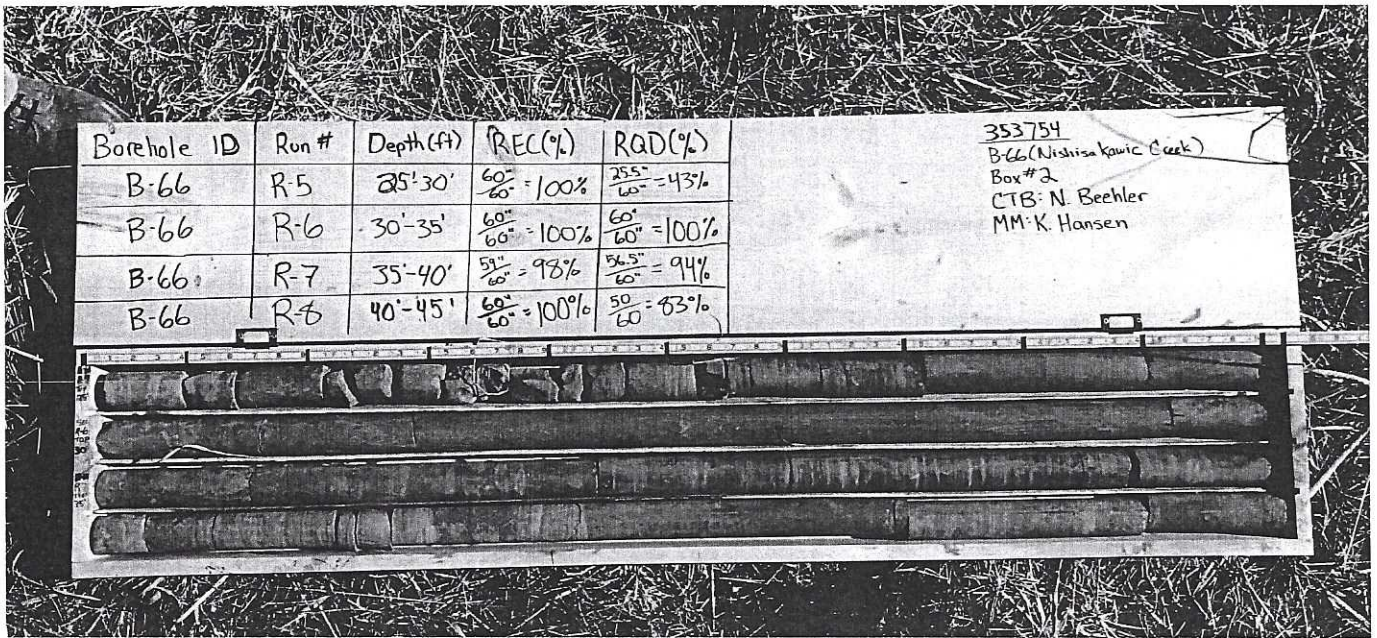 Borehole ID Run # Depth (ft) REC(%) RQD(%)
B-66 R-5 25'-30' 60"/60" = 100% 25.5"/60" = 43%
B-66 R-6 30'-35' 60"/60" = 100% 60"/60" = 100%
B-66 R-7 35'-40' 59"/60" = 98% 56.5"/60" = 94%
B-66 R-8 40'-45' 60"/60" = 100% 50/60 = 83%
353754
B-66 (Nishisakawic Creek)
Box #2
CTB: N. Beehler
MM: K. Hansen